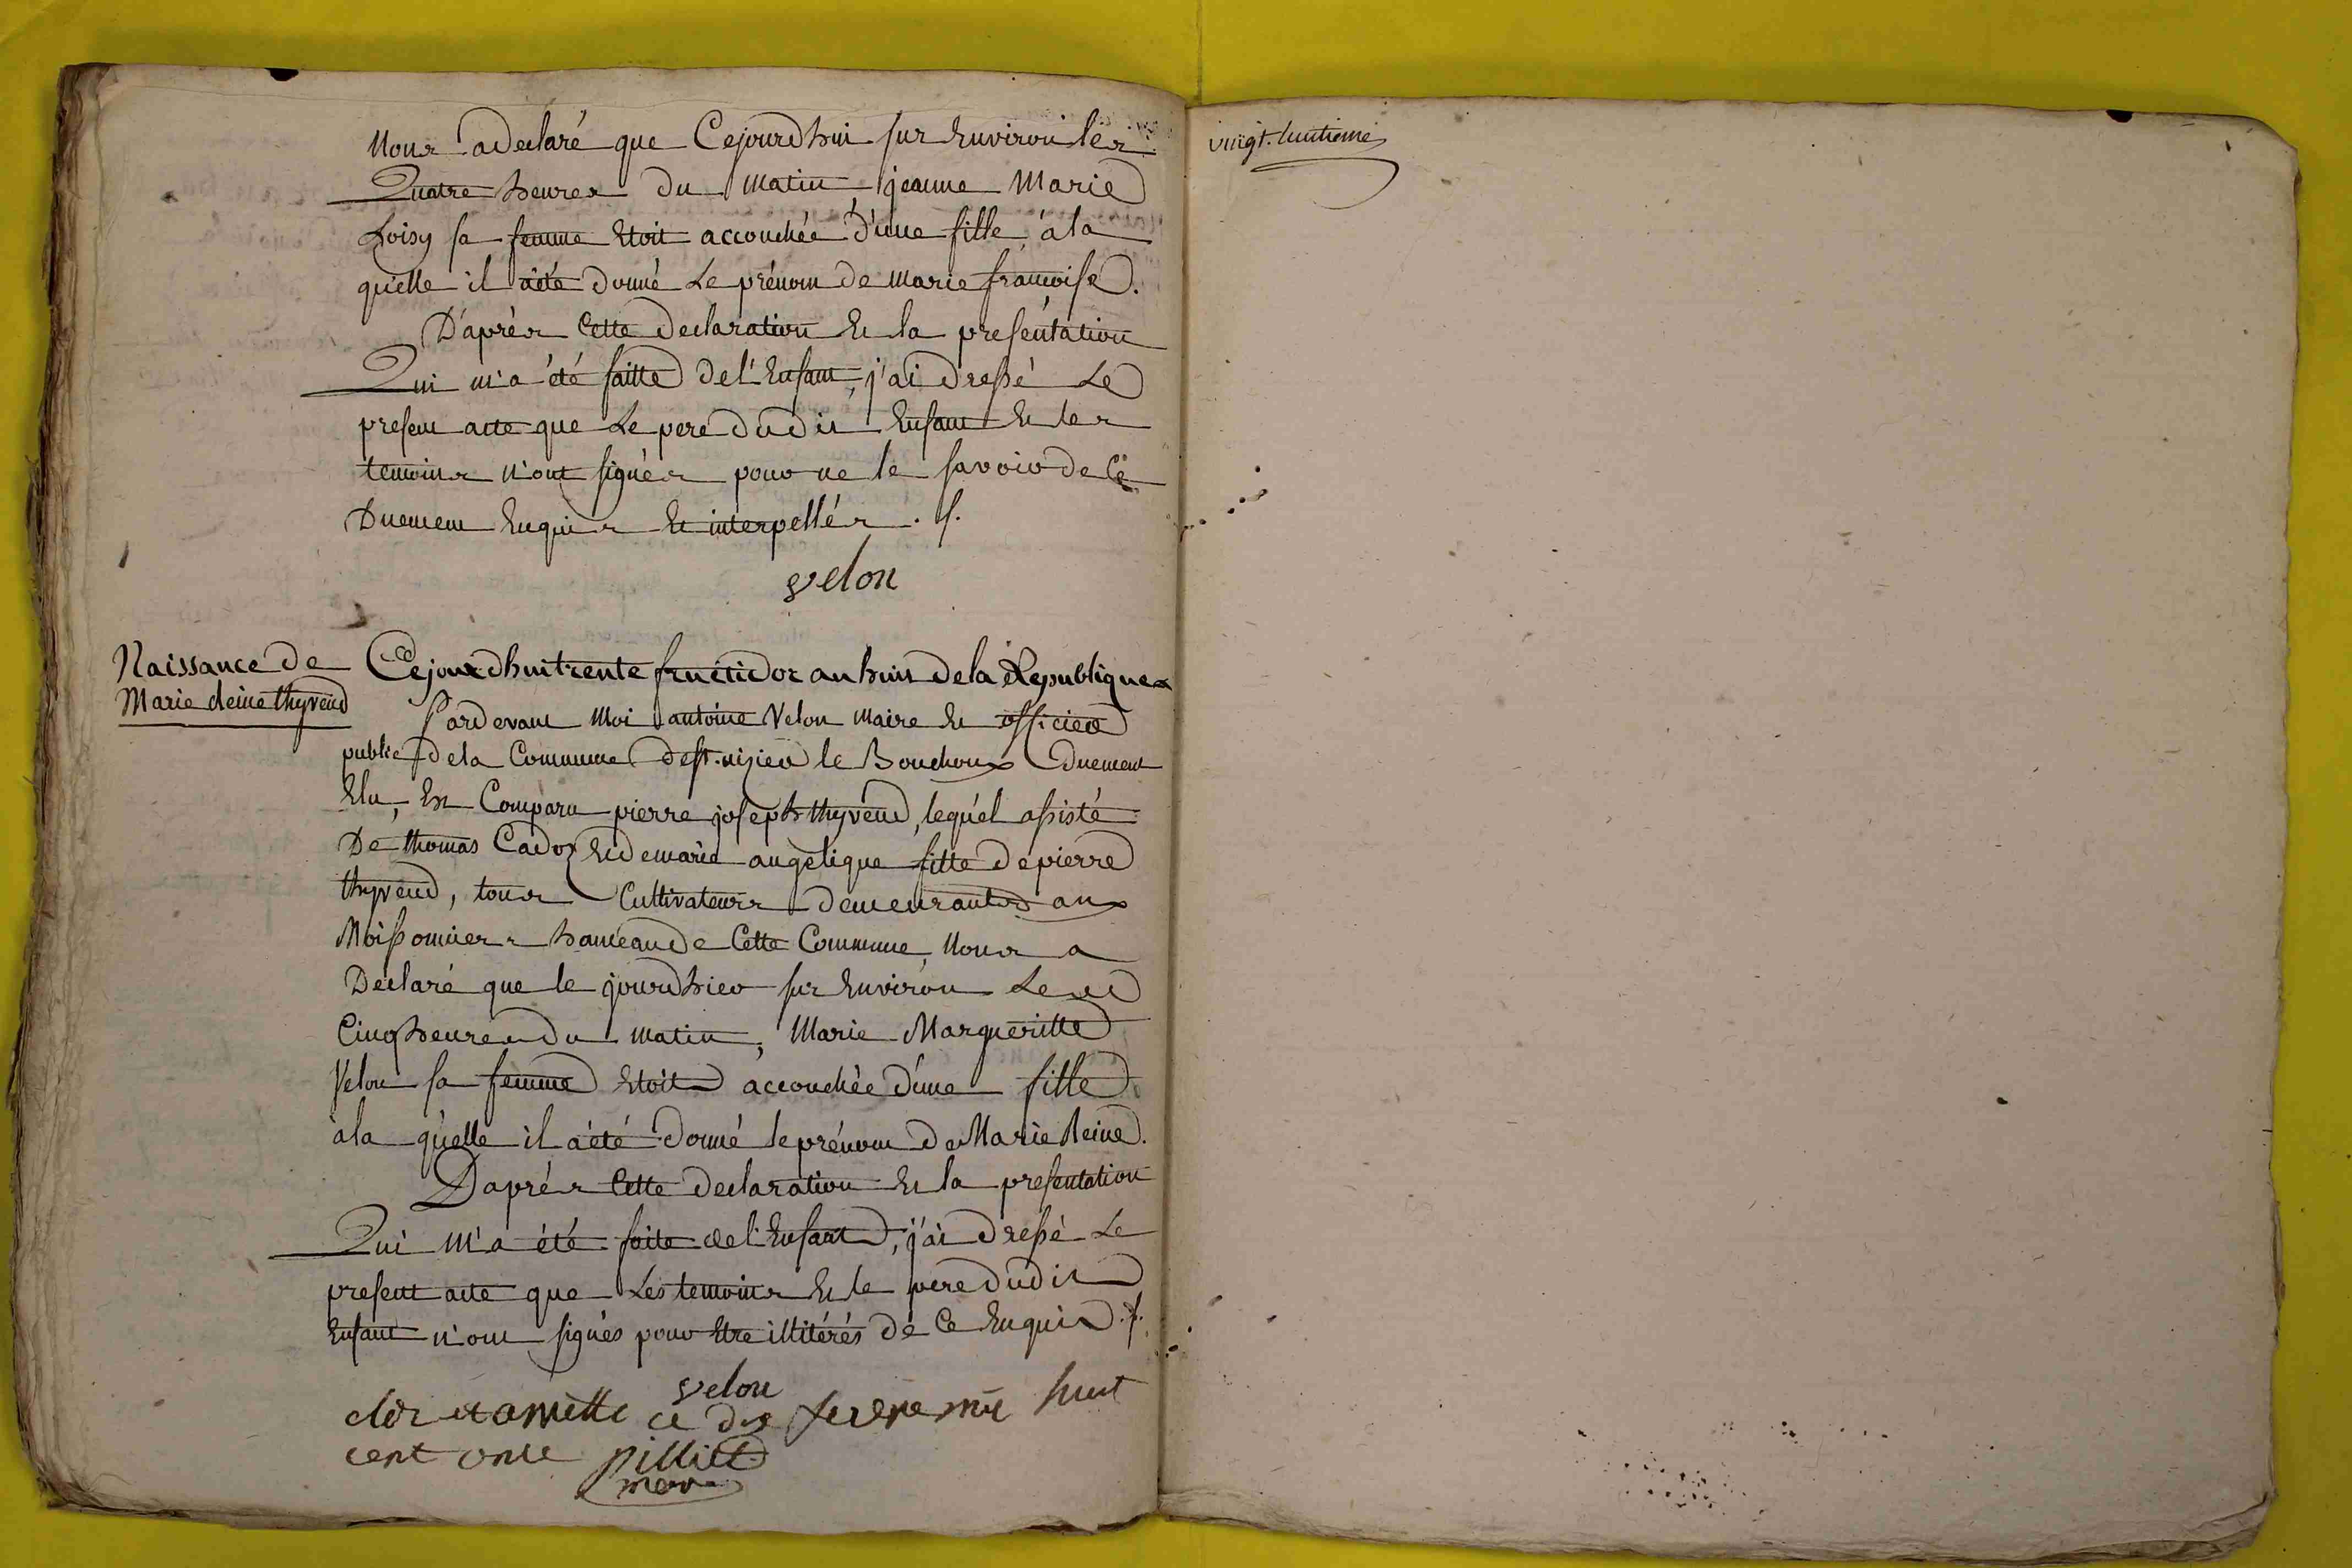 Nous a declaré que Cejourdhui sur Environ les
Quatre heures du matin jeanne Marie
Loisy sa femme Etoit accouchée d'une fille, à la
quelle il a été donné Le prénom de marie françoise.
D'après Cette declaration Et la presentation
Qui m'a été faitte de l'Enfant, j'ai dressé Le
present acte que Le pere dudit Enfant Et les
temoins n'ont signés pour ne le savoir de Ce
Duement Enquis Et interpellés .
velon
Naissance de
Marie Reine thyvend
Cejourdhui trente fructidor an huit de la Republique
Pardevant Moi antoine Velon Maire Et officier
public de la Commune de st. nizier le Bouchoux Duement
Elu, Est Comparu pierre joseph thyvend, lequel assisté
De thomas Cadoz Et de marie angelique fille de pierre
thyvend, tous Cultivateurs demeurants aux
Moissonniers hameau de Cette Commune, Nous a
Declaré que le jourdhier sur Environ Les
Cinq heures du matin, Marie Margueritte
Velon sa femme Etoit accouchée d'une fille
à la quelle il a été donné le prénom de Marie Reine.
D'aprés Cette declaration Et la presentation
Qui m'a été faite de l'Enfant, j'ai dressé Le
present acte que Les temoins Et le pere dudit
Enfant n'ont signés pour Etre illitérés de Ce Enquis .
velon
clos et arretté ce dix mil huit
cent onze pilliet
vingt-huitieme